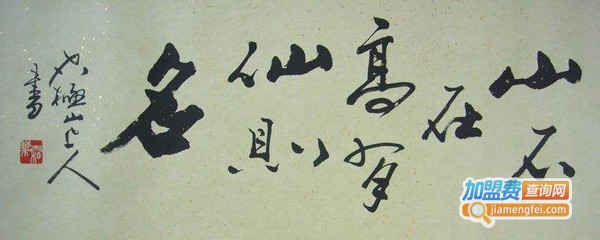 山不
在
高有
仙則
名
山人
書
加盟费查询网
jiamengfei.com